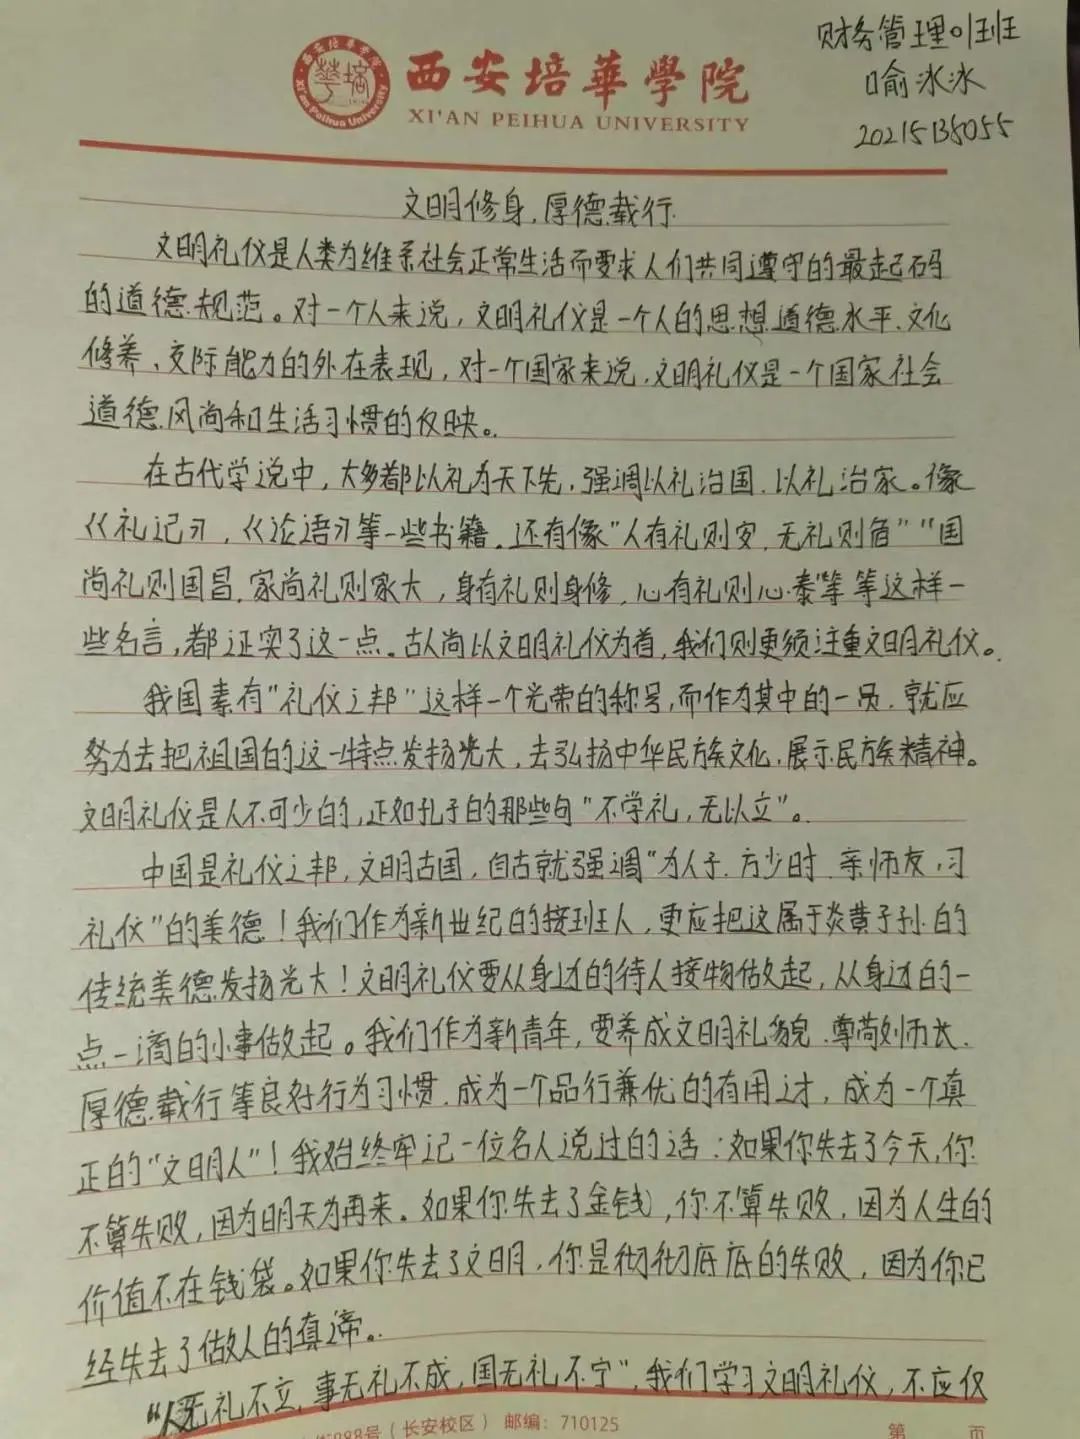 财务管理01班
喻冰冰
西安培華學院
XI'AN PEIHUA UNIVERSITY
文明修身,厚德载行
文明礼仪是人类为维系社会正常生活而要求人们共同遵守的最起码
的道德规范。对一个人来说,文明礼仪是一个人的思想道德水平、文化
修养、交际能力的外在表现,对一个国家来说,文明礼仪是一个国家社会
道德风尚和生活习惯的反映。
在古代学说中,大多都以礼为天下先,强调以礼治国,以礼治家。像
《礼记》,《论语》等一些书籍。还有像"人有礼则安,无礼则危""国
尚礼则国昌,家尚礼则家大,身有礼则身修,心有礼则心泰"等等这样一
些名言,都证实了这一点。古人尚以文明礼仪为首,我们则更须注重文明礼仪。
我国素有"礼仪之邦"这样一个光荣的称号,而作为其中的一员,就应
努力去把祖国的这一特点发扬光大,去弘扬中华民族文化,展示民族精神。
文明礼仪是人不可少的,正如孔子的那些句"不学礼,无以立"。
中国是礼仪之邦,文明古国,自古就强调"为人子,方少时,亲师友,习
礼仪"的美德!我们作为新世纪的接班人,更应把这属于炎黄子孙的
传统美德发扬光大!文明礼仪要从身边的待人接物做起,从身边的一
点一滴的小事做起。我们作为新青年,要养成文明礼貌、尊敬师长、
厚德载行等良好行为习惯,成为一个品行兼优的有用之才,成为一个真
正的"文明人"!我始终牢记一位名人说过的话:如果你失去了今天,你
不算失败,因为明天为再来。如果你失去了金钱,你不算失败,因为人生的
价值不在钱袋。如果你失去了文明,你是彻彻底底的失败,因为你已
经失去了做人的真谛。
"人无礼不立,事无礼不成,国无礼不宁",我们学习文明礼仪,不应仅
888号(长安校区) 邮编:710125
第 页